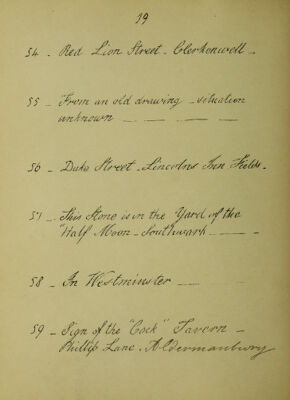 19
54 - Red Lion Street - Clerkenwell -
55 - From an old drawing - situation
unknown - - - -
56 - Duke Street - Lincolns Inn Fields -
57 - This Stone is in the Yard of the
Half Moon - Southwark - -
58 - In Westminster - -
59 - Sign of the "Cock" Tavern -
Phillip Lane - Aldermanbury